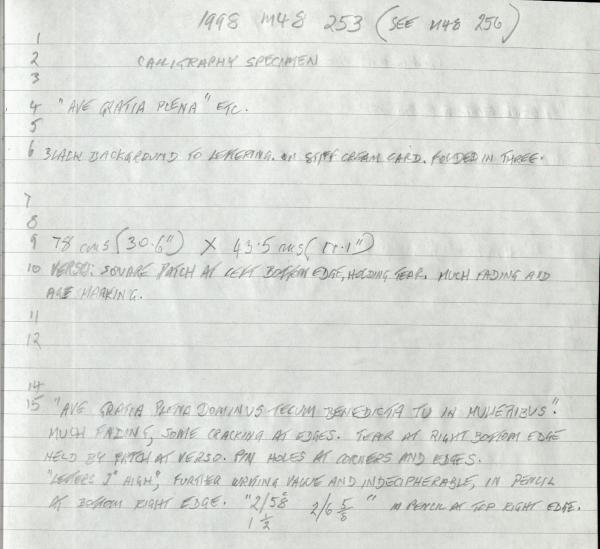 1998 M48 253 (SEE M48 256)
1
2 CALLIGRAPHY SPECIMEN
3
4 "AVE GRATIA PLENA" ETC.
5
6 BLACK BACKGROUND TO LETTERING. ON STIFF CREAM CARD. FOLDED IN THREE.
7
8
9 78 cms (30.6") X 43.5 cms (17.1")
10 VERSO: SQUARE PATCH AT LEFT BOTTOM EDGE, HOLDING TEAR. MUCH FADING AND
AGE MARKING.
11
12
14
15 "AVE GRATIA PLENA DOMINUS TECUM BENEDICTA TU IN MULIERIBUS".
MUCH FADING, SOME CRACKING AT EDGES. TEAR AT RIGHT BOTTOM EDGE
HELD BY PATCH AT VERSO. PIN HOLES AT CORNERS AND EDGES.
"LETTERS 3" HIGH", FURTHER WRITING VAGUE AND INDECIPHERABLE, IN PENCIL
AT BOTTOM RIGHT EDGE. "2/58 2/6 5/8 " IN PENCIL AT TOP RIGHT EDGE.
1 1/2